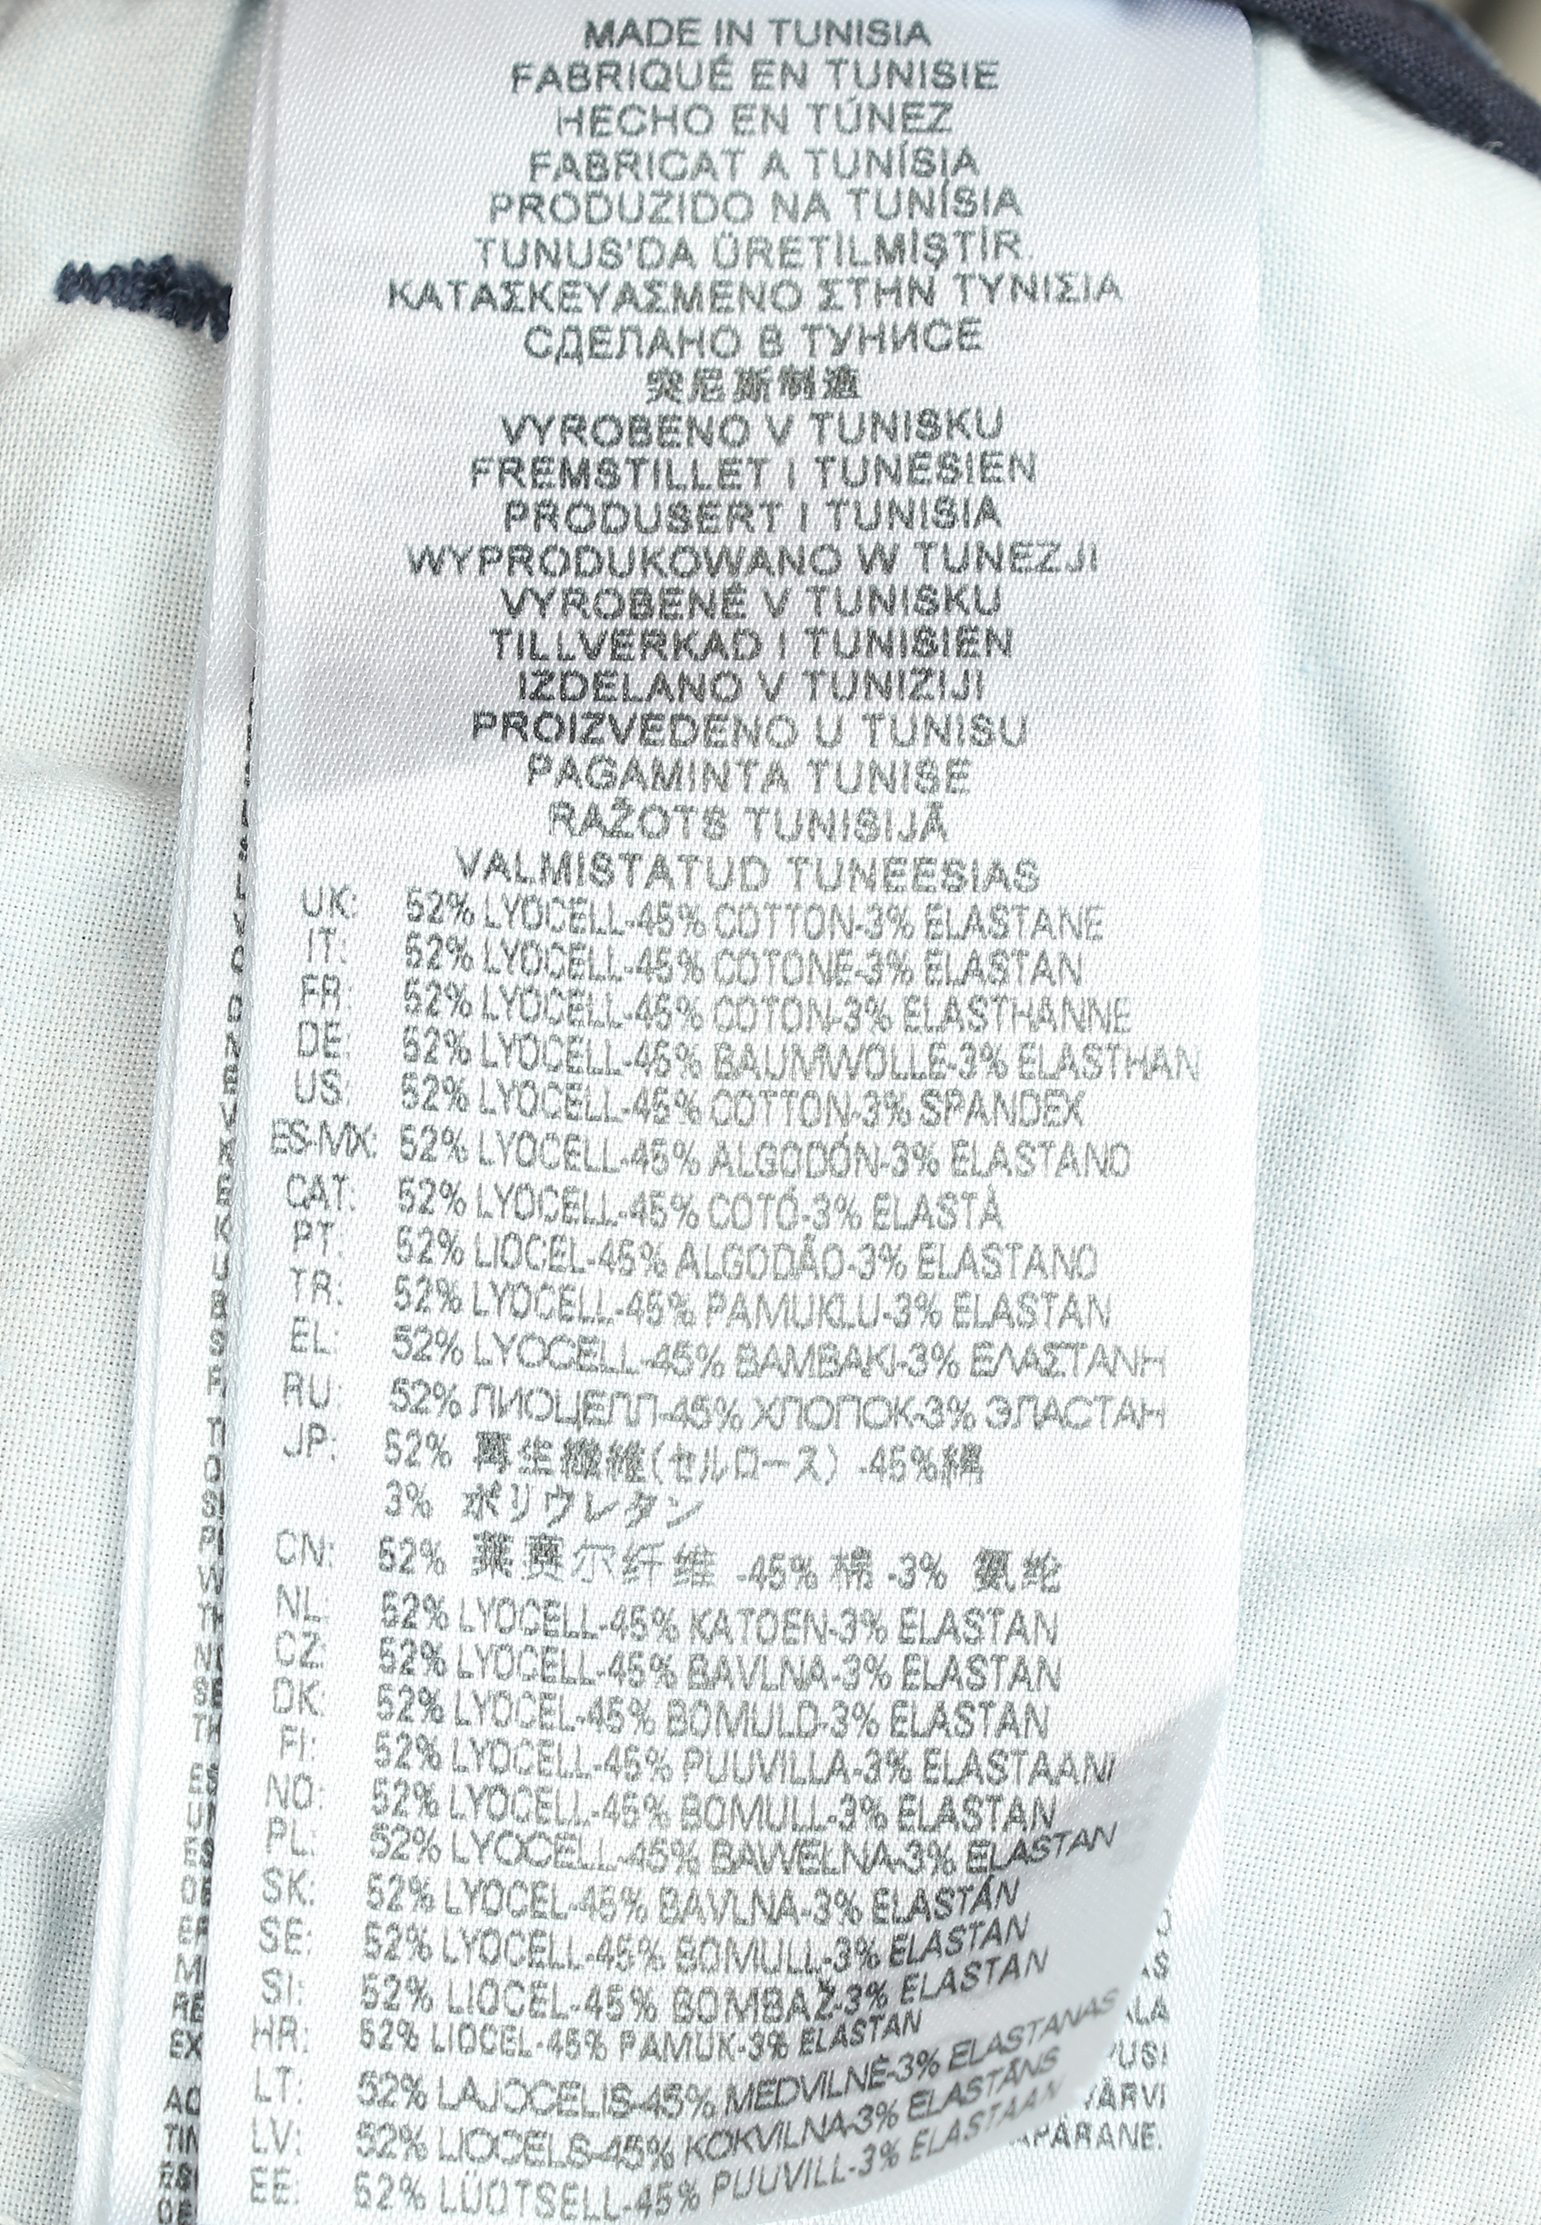 MADE IN TUNISIA
FABRIQUÉ EN TUNISIE
HECHO EN TÚNEZ
FABRICAT A TUNÍSIA
PRODUZIDO NA TUNÍSIA
TUNUS'DA ÜRETİLMİŞTİR.
ΚΑΤΑΣΚΕΥΑΣΜΕΝΟ ΣΤΗΝ ΤΥΝΙΣΙΑ
СДЕЛАНО В ТУНИСЕ
突尼斯制造
VYROBENO V TUNISKU
FREMSTILLET I TUNESIEN
PRODUSERT I TUNISIA
WYPRODUKOWANO W TUNEZJI
VYROBENÉ V TUNISKU
TILLVERKAD I TUNISIEN
IZDELANO V TUNIZIJI
PROIZVEDENO U TUNISU
PAGAMINTA TUNISE
RAŽOTS TUNISIJĀ
VALMISTATUD TUNEESIAS
UK: 52% LYOCELL-45% COTTON-3% ELASTANE
IT: 52% LYOCELL-45% COTONE-3% ELASTAN
FR: 52% LYOCELL-45% COTON-3% ELASTHANNE
DE: 52% LYOCELL-45% BAUMWOLLE-3% ELASTHAN
US: 52% LYOCELL-45% COTTON-3% SPANDEX
ES-MX: 52% LYOCELL-45% ALGODÓN-3% ELASTANO
CAT: 52% LYOCELL-45% COTÓ-3% ELASTÀ
PT: 52% LIOCEL-45% ALGODÃO-3% ELASTANO
TR: 52% LYOCELL-45% PAMUKLU-3% ELASTAN
EL: 52% LYOCELL-45% ΒΑΜΒΑΚΙ-3% ΕΛΑΣΤΑΝΗ
RU: 52% ЛИОЦЕЛЛ-45% ХЛОПОК-3% ЭЛАСТАН
JP: 52% 再生繊維(セルロース) -45%綿
3% ポリウレタン
CN: 52% 莱赛尔纤维 -45% 棉 -3% 氨纶
NL: 52% LYOCELL-45% KATOEN-3% ELASTAN
CZ: 52% LYOCELL-45% BAVLNA-3% ELASTAN
DK: 52% LYOCEL-45% BOMULD-3% ELASTAN
FI: 52% LYOCELL-45% PUUVILLA-3% ELASTAANI
NO: 52% LYOCELL-45% BOMULL-3% ELASTAN
PL: 52% LYOCELL-45% BAWEŁNA-3% ELASTAN
SK: 52% LYOCEL-45% BAVLNA-3% ELASTÁN
SE: 52% LYOCELL-45% BOMULL-3% ELASTAN
SI: 52% LIOCEL-45% BOMBAŽ-3% ELASTAN
HR: 52% LIOCEL-45% PAMUK-3% ELASTAN
LT: 52% LAJOCELIS-45% MEDVILNĖ-3% ELASTANAS
LV: 52% LIOCELS-45% KOKVILNA-3% ELASTĀNS
EE: 52% LÜOTSELL-45% PUUVILL-3% ELASTAAN